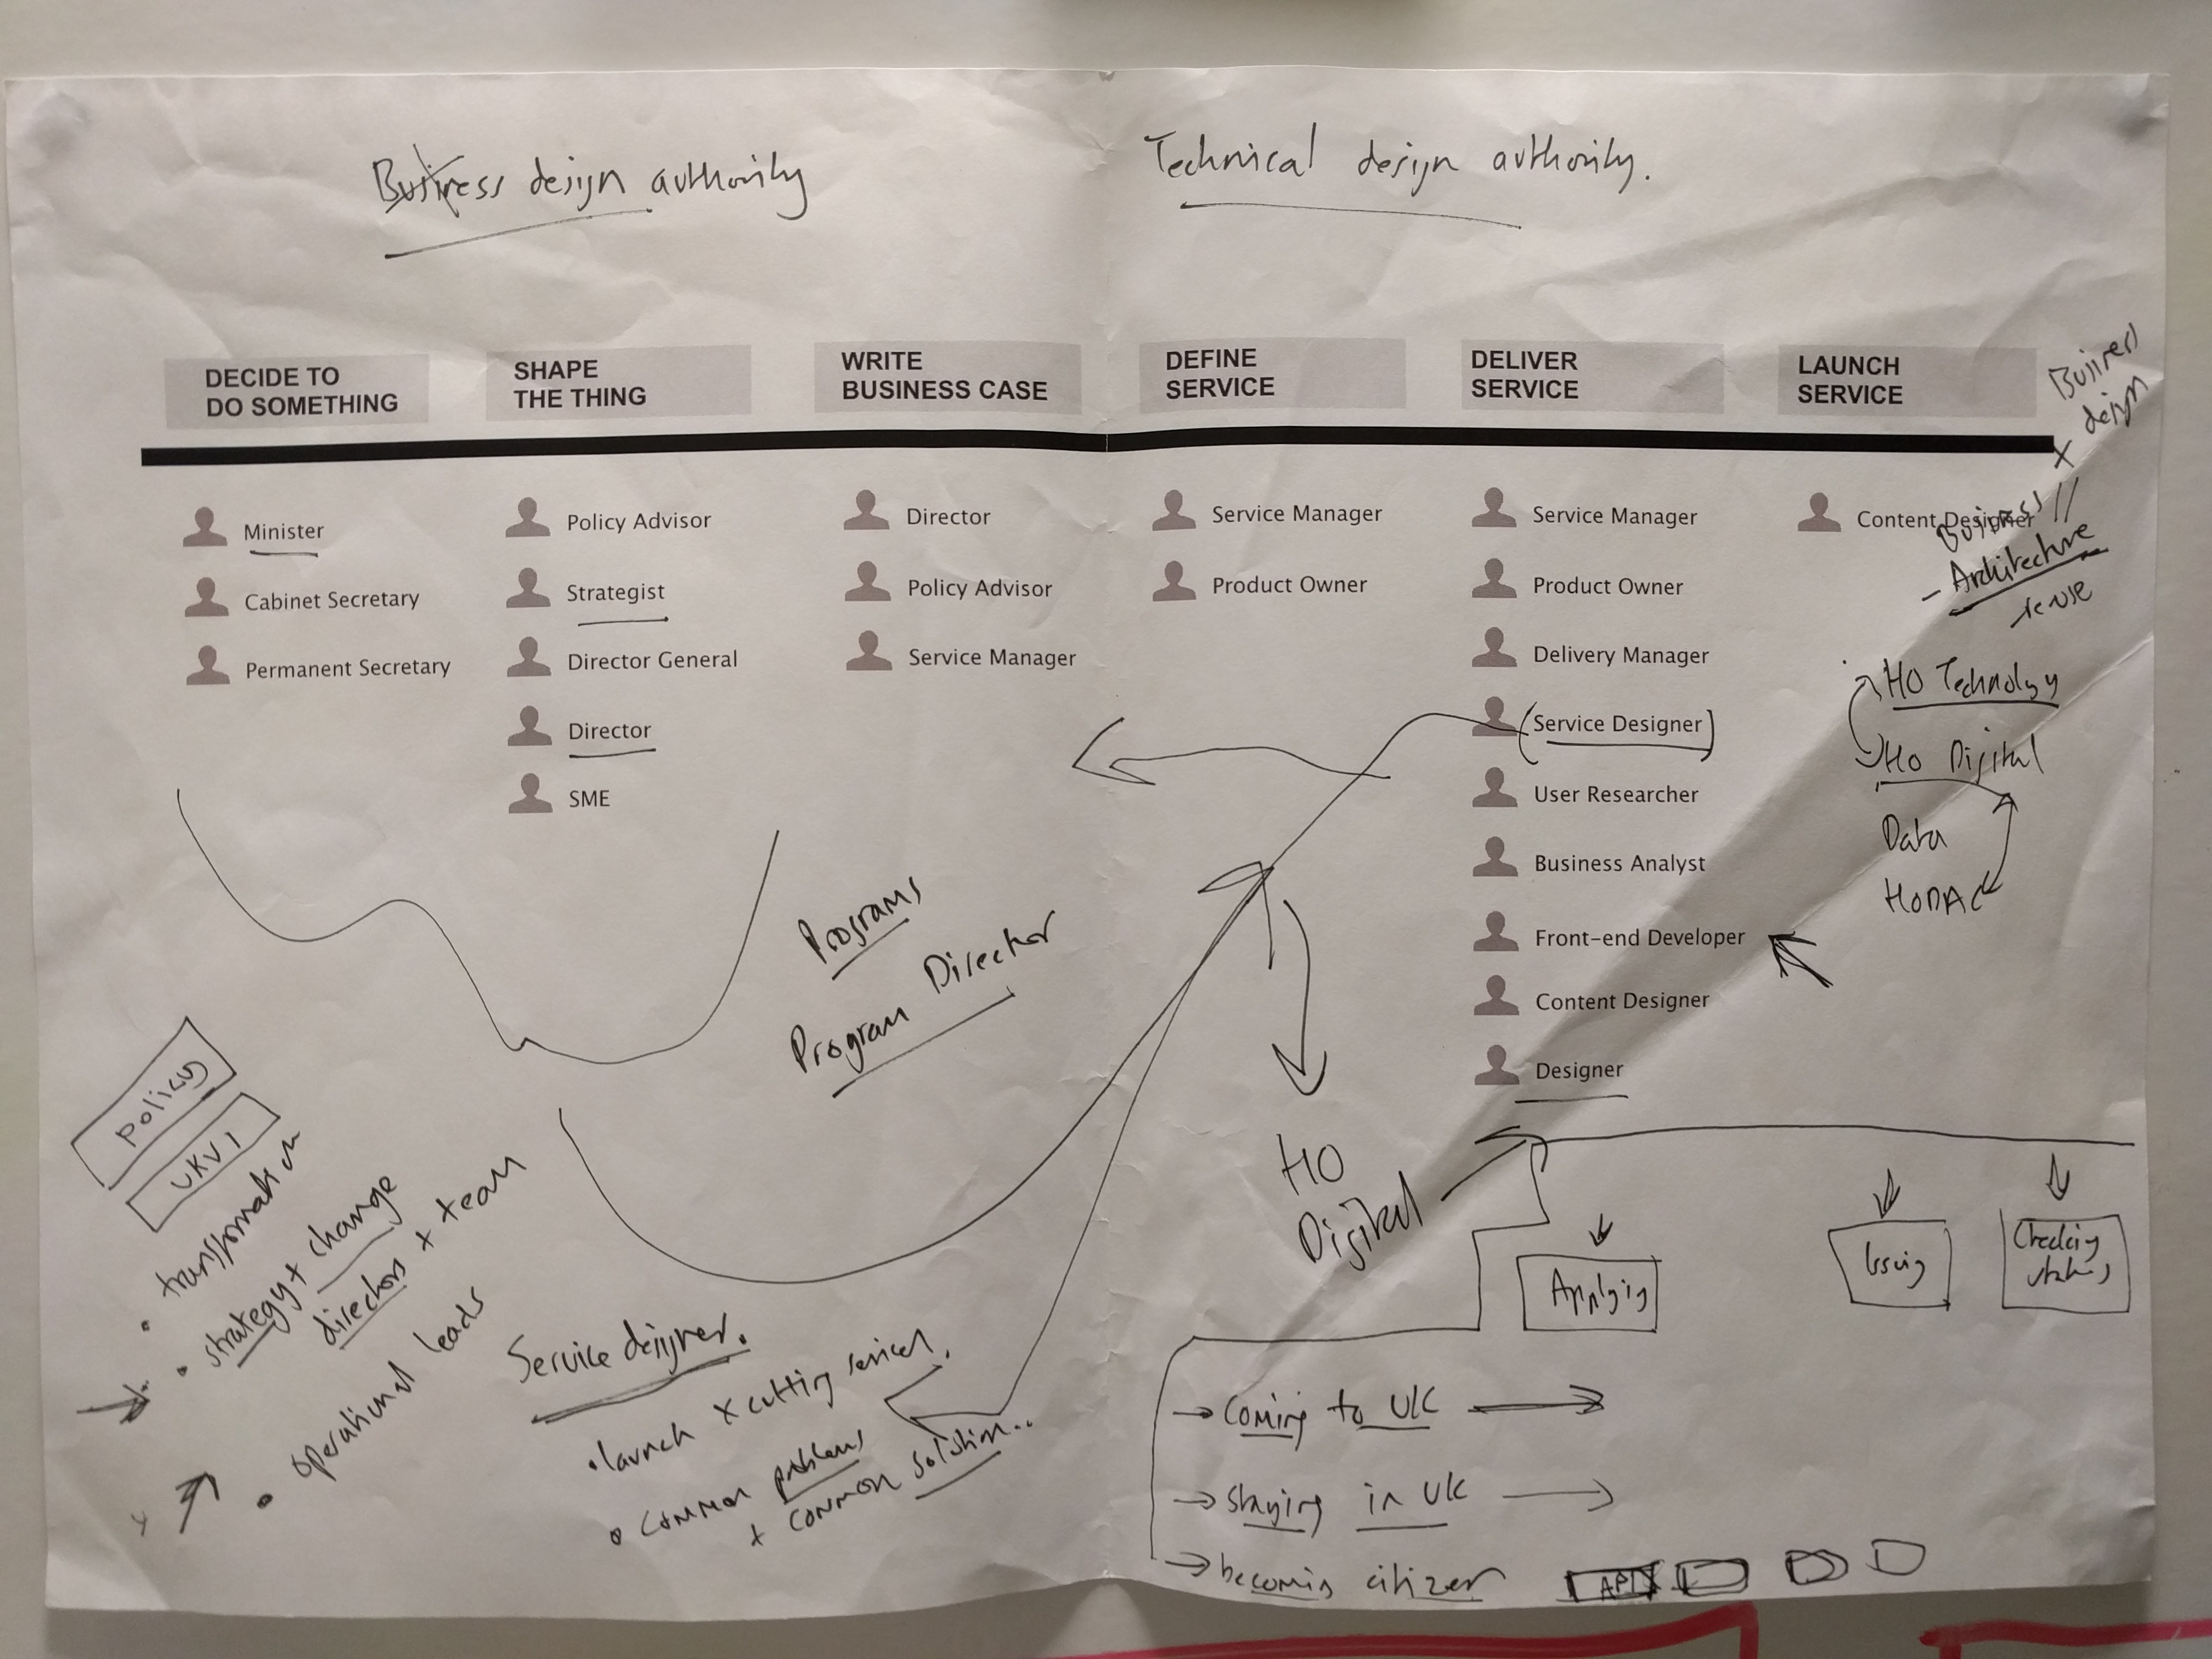 Business design authority
Technical design authority.
DECIDE TO
DO SOMETHING
SHAPE
THE THING
WRITE
BUSINESS CASE
DEFINE
SERVICE
DELIVER
SERVICE
LAUNCH
SERVICE
Minister
Cabinet Secretary
Permanent Secretary
Policy Advisor
Strategist
Director General
Director
SME
Director
Policy Advisor
Service Manager
Service Manager
Product Owner
Service Manager
Product Owner
Delivery Manager
(Service Designer)
User Researcher
Business Analyst
Front-end Developer
Content Designer
Designer
Content Designer
Business
+ design
Business //
- Architecture
re-use
HO Technology
HO Digital
Data
HODAC
Programs
Program Director
Policy
UKVI
• transformation
• strategy + change
directors + team
• operational leads
Service designer.
• launch x cutting services.
• common problems
+ common solution..
HO
Digital
Applying
Issuing
Checking
status
→ Coming to UK →
→ Staying in UK →
→ becoming citizen
API